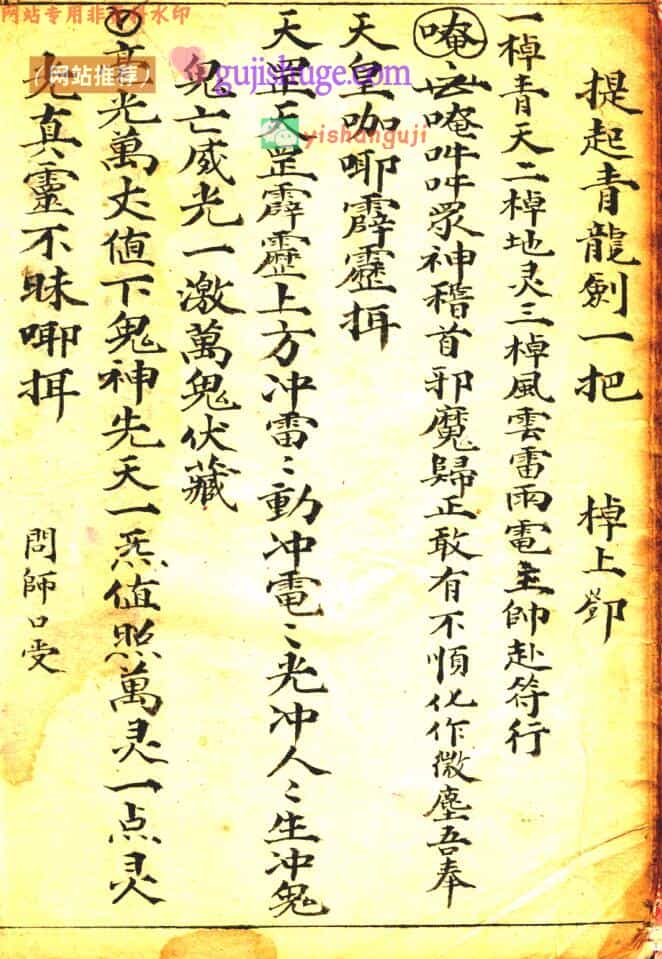 提起青龍劍一把 棹上鄧
一棹青天二棹地灵三棹風雲雷雨電主帥赴符行
唵吽唵吽吽眾神稽首邪魔歸正敢有不順化作微塵吾奉
天皇咖唧霹靂揖
天罡天罡霹靂上方冲雷〻動冲電〻光冲人〻生冲鬼
鬼亡威光一激萬鬼伏藏
亮光萬丈值下鬼神先天一炁值照萬灵一点灵
九真〻靈不昧唧揖
問師口受
网站专用非 水印
（网站推荐）
gujishuge.com
yishanguji